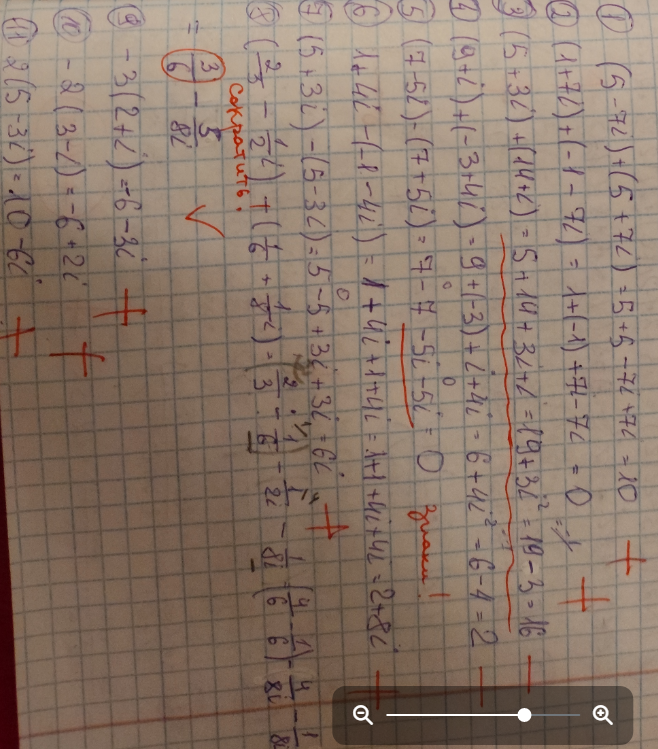 ① (5-7i)+(5+7i)=5+5-7i+7i=10 +
② (1+7i)+(-1-7i)=1+(-1)+7i-7i=0 +
③ (5+3i)+(14+i)=5+14+3i+i=19+3i²=19-3=16 -
④ (9+i)+(-3+4i)=9+(-3)+i+4i=6+4i²=6-4=2 -
⑤ (7-5i)-(7+5i)=7-7-5i-5i=0 знаки!
⑥ 1+4i-(-1-4i)=1+4i+1+4i=1+1+4i+4i=2+8i +
⑦ (5+3i)-(5-3i)=5-5+3i+3i=6i +
⑧ (2/3-1/2i)+(1/6+1/8i)=(2/3-1/6-1/2i-1/8i(4/6-1/6)-4/8i-1/8
=3/6-5/8i ✓
сократить.
⑨ -3(2+i)=-6-3i +
⑩ -2(3-i)=-6+2i +
⑪ 2(5-3i)=10-6i +